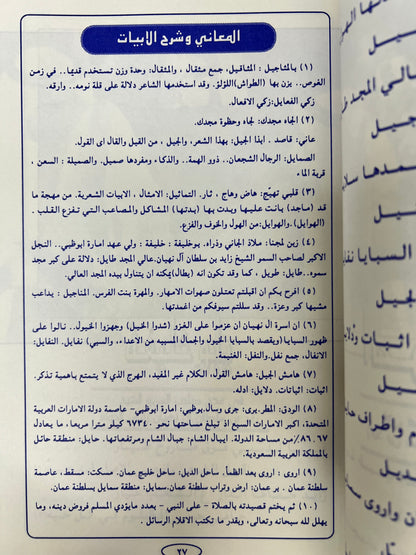 المعاني وشرح الابيات
(١) بالمثاجيل : المثاقيل، جمع مثقال ، والمثقال: وحدة وزن تستخدم قديماً.. في زمن
الغوص.. يزن بها (الطواش)اللؤلؤ. وقد استخدمها الشاعر دلالة على قلة نومه.. وارقه.
زكي الفعايل:زكي الافعال.
(٢) الجاه مجدك: لجاه وحظوة مجدك.
عاني: قاصد . ابذا الجيل: بهذا الشعر، والجيل ، من القيل والقال اي القول.
الصمايل: الرجال الشجعان.. ذوو الهمة.. والذكاء ومفردها صميل. والصميلة : السعن ،
قربة الماء
(٣) قلبي تهيج: هاض وهاج ، ثار. التماثيل: الامثال ، الابيات الشعرية. من مهجة ما
قد (ماجد) بانت عليها وبدت بها (بدتها) المشاكل والمصاعب التي تفزع القلب .
(الهوايل).والهوايل:من الهول والخوف والفزع.
(٤) زبن لجنا: ملاذ الجاني وذراه. بوخليفة : خليفة : ولي عهد امارة ابوظبي.. النجل
الاكبر لصاحب السمو الشيخ زايد بن سلطان آل نهيان.عالي المجد طايل: دلالة على كبر مجد
سموه.. طايل: طويل ، كما وقد تكون انه (يطال)يمكنه ان يتناول بيده المجد العالي.
(٥) افرح بكم ان اقبلتم تعتلون صهوات الامهار. والمهرة بنت الفرس. المناجيل : يداعب
مشيها كبر وعزة.. وقد سللتم سيوفكم من اغمدتها.
(٦) ان اسرة آل نهيان ان عزموا على الغزو (شدوا الحيل) وجهزوا الخيول.. نالوا على
ظهور السبايا(ويقصد بالسبايا الخيول والجمال المسبيه من الاعداء، والسبي) نفايل. النفايل:
الانفال، جمع نفل.والنفل: الغنيمة.
(٧) هامش الجيل: هامش القول، الكلام غير المفيد، الهرج الذي لا يتمتع باهمية تذكر.
اثبات: اثباتات. دلايل: ادله.
(٨) الودق: المطر.برى: جرى وسال.بوظبي: امارة ابوظبي- عاصمة دولة الامارات العربية
المتحدة، اكبر الامارات السبع اذ تبلغ مساحتها نحو ٦٧٣٤٠ كيلو مترا مربعا، ما يعادل
٨٦,٦٧٪ من مساحة الدولة. ايبال الشام: جبال الشام ومرتفعاتها. حايل: منطقة حائل
بالمملكة العربية السعودية.
(٩) اروى : اروى بعد الظمأ. ساحل الديل: ساحل خليج عمان. مسكت: مسقط، عاصمة
سلطنة عمان . بر عمان: ارض وتراب سلطنة عمان.سمايل: منطقة سمايل بسلطنة عمان.
(١٠) ثم يختم قصيدته بالصلاة – على النبي – بعدد مايؤدي المسلم فروض دينه، وما
يهلل لله سبحانه وتعالى، وبقدر ما تكتب الاقلام الرسائل .
٢٧